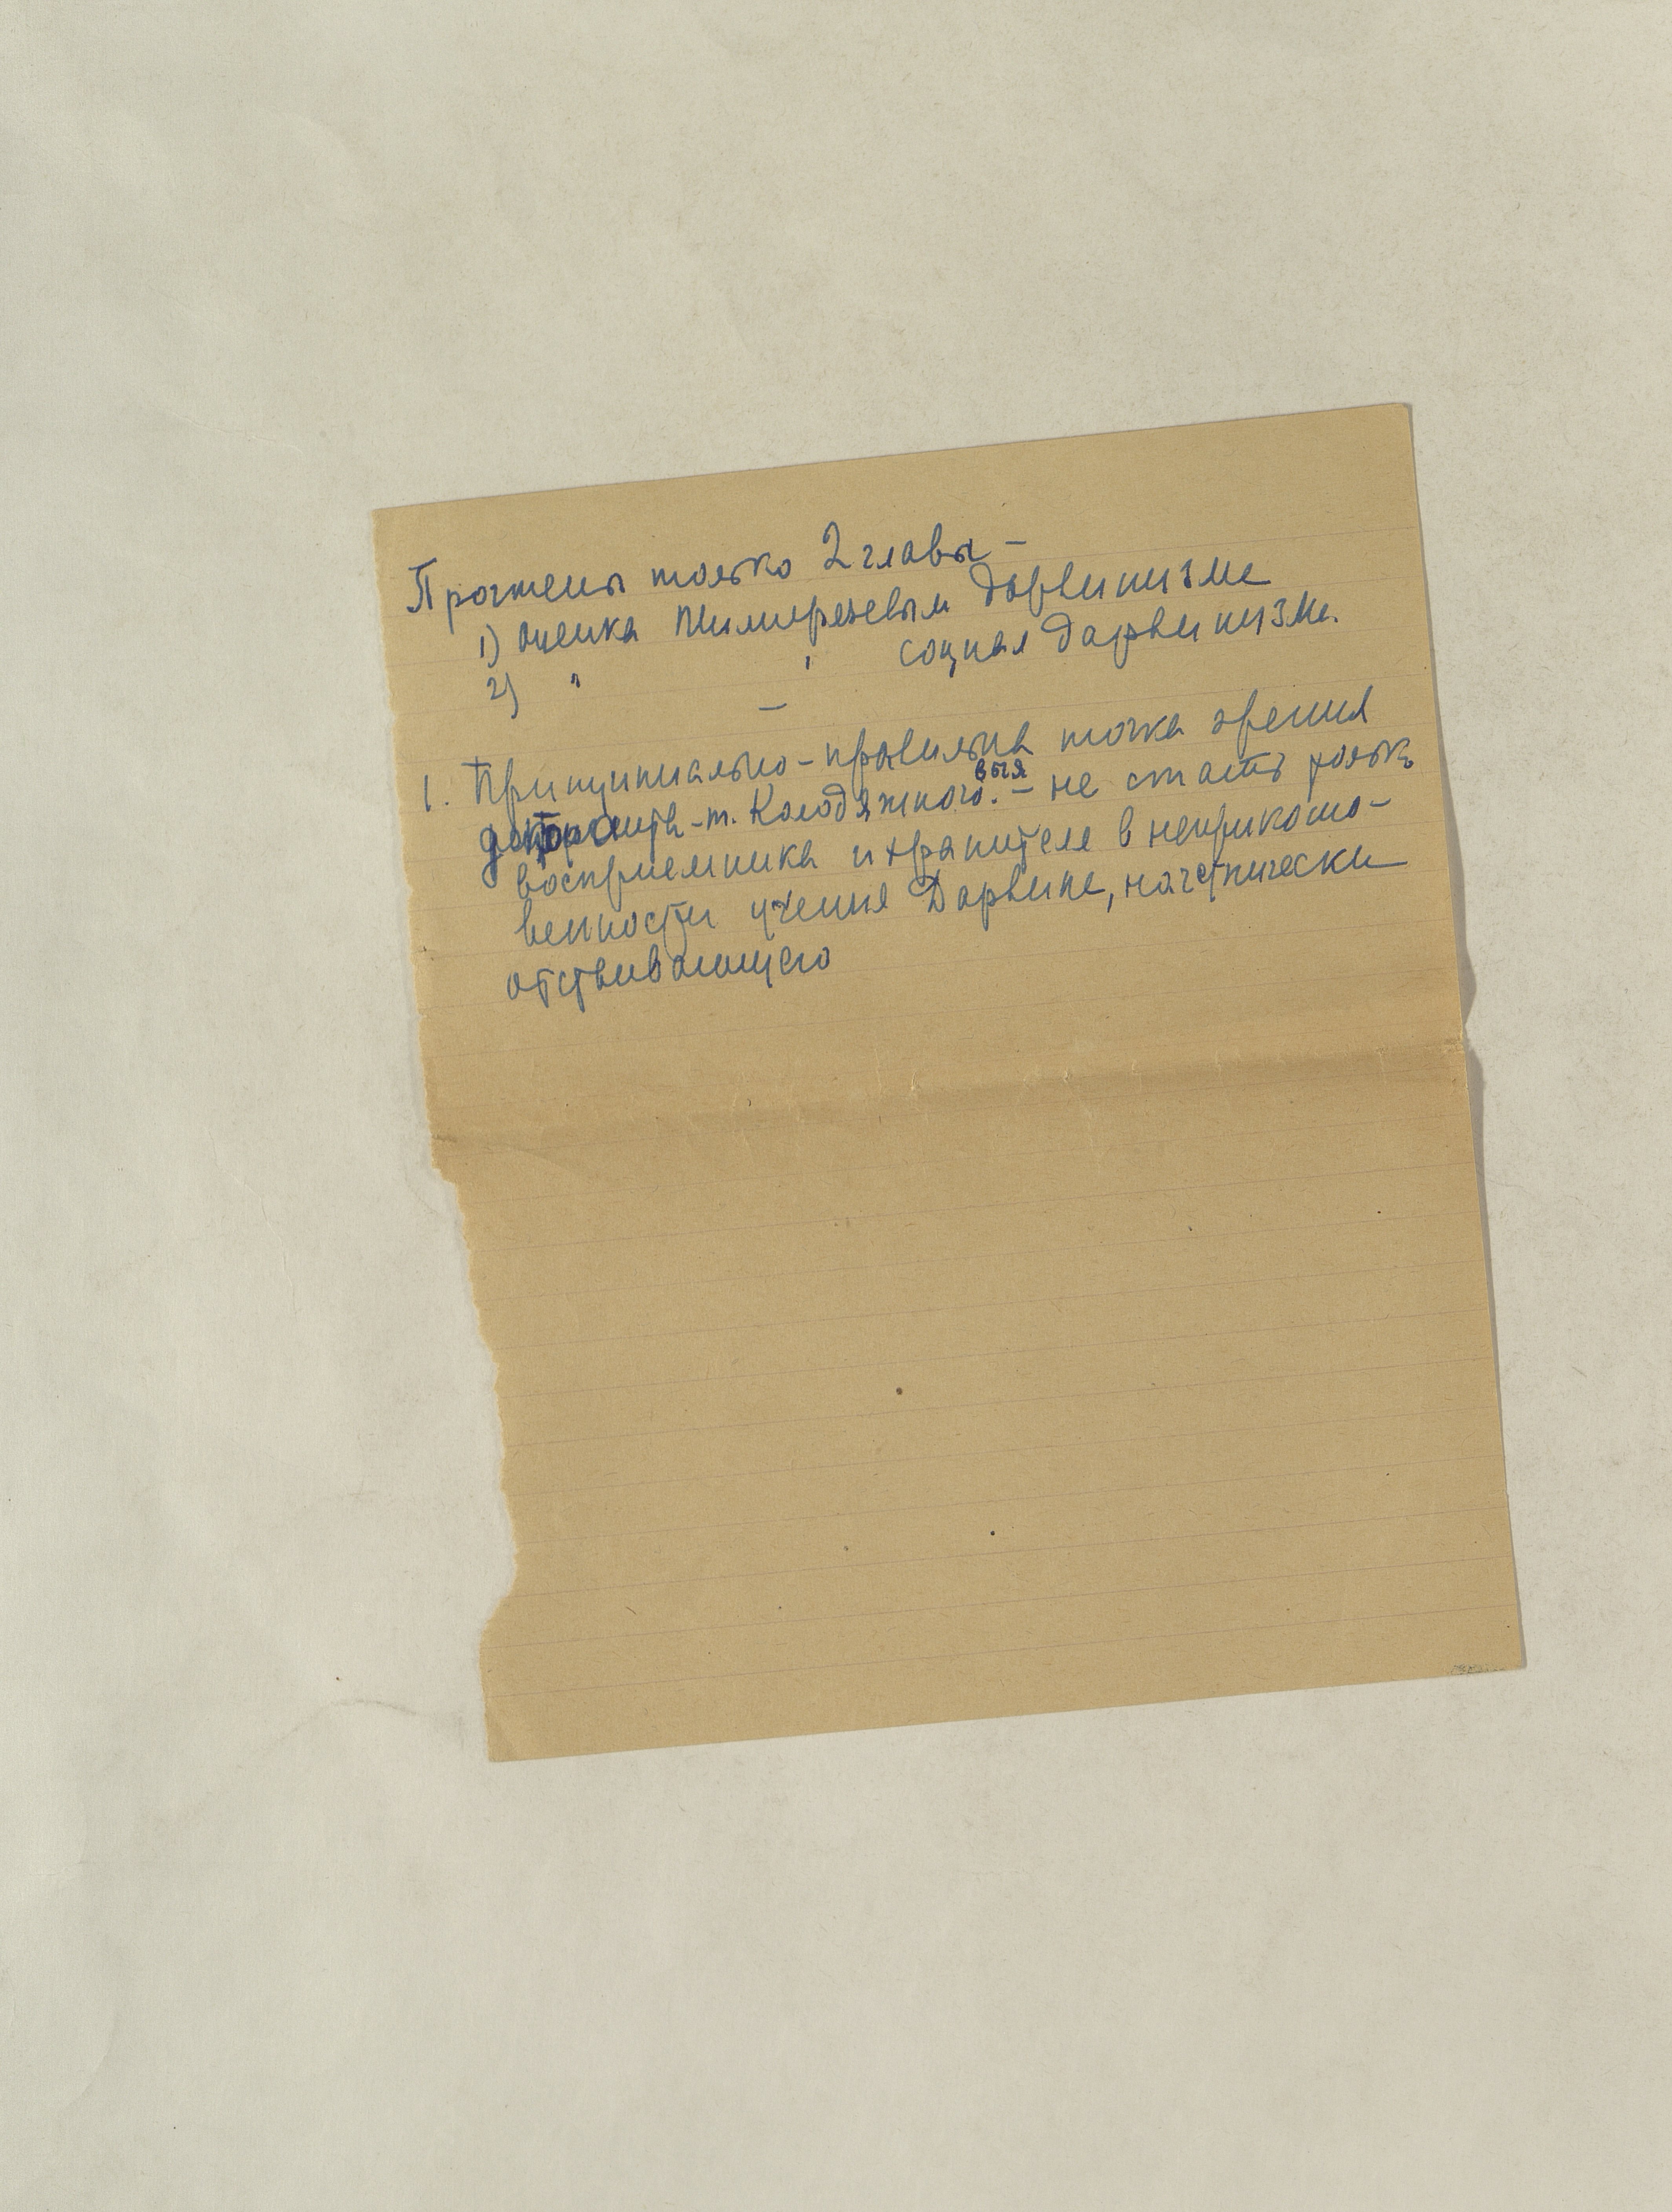 Прочтены только 2 главы –
1) Оценка Тимирязевым Дарвинизма
2) " " социал Дарвинизма.
–
1. Принципиально-правильна точка зрения
т. Колодяжного. – не стать только
восприемника и хранителя в неприкосно-
венности учения Дарвина, начетнически
отстаивающего